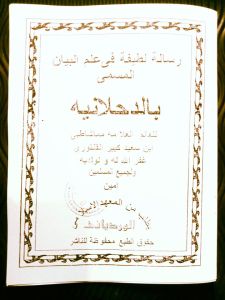 رسالة لطيفة في علم البيان
المسمى
بالدحلانيه
للعالم العلامة
ابن سعيد كبير
غفر الله له ولوالديه
ولجميع المسلمين
امين
من المعهد
حقوق الطبع محفوظة للناشر